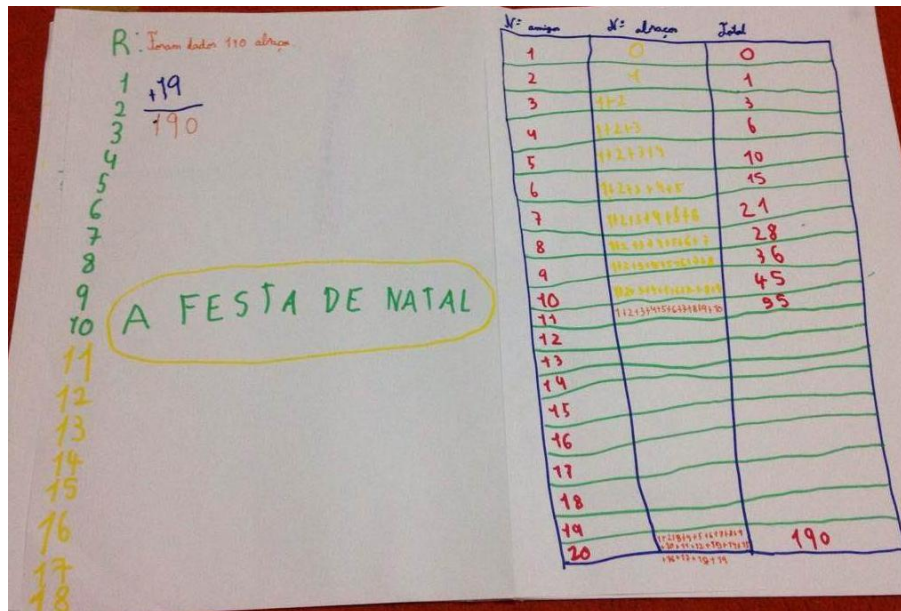 R: Foram dados 190 abraços.
1
2
3
4
5
6
7
8
9
10
11
12
13
14
15
16
17
18
+19
190
A FESTA DE NATAL
Nº amigos Nº abraços Total
1 0 0
2 1 1
3 1+2 3
4 1+2+3 6
5 1+2+3+4 10
6 1+2+3+4+5 15
7 1+2+3+4+5+6 21
8 1+2+3+4+5+6+7 28
9 1+2+3+4+5+6+7+8 36
10 1+2+3+4+5+6+7+8+9 45
11 1+2+3+4+5+6+7+8+9+10 55
12
13
14
15
16
17
18
19
20 1+2+3+4+5+6+7+8+9 190
+10+11+12+13+14+15
+16+17+18+19